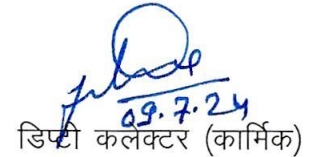 09.7.24
डिप्टी कलेक्टर (कार्मिक)